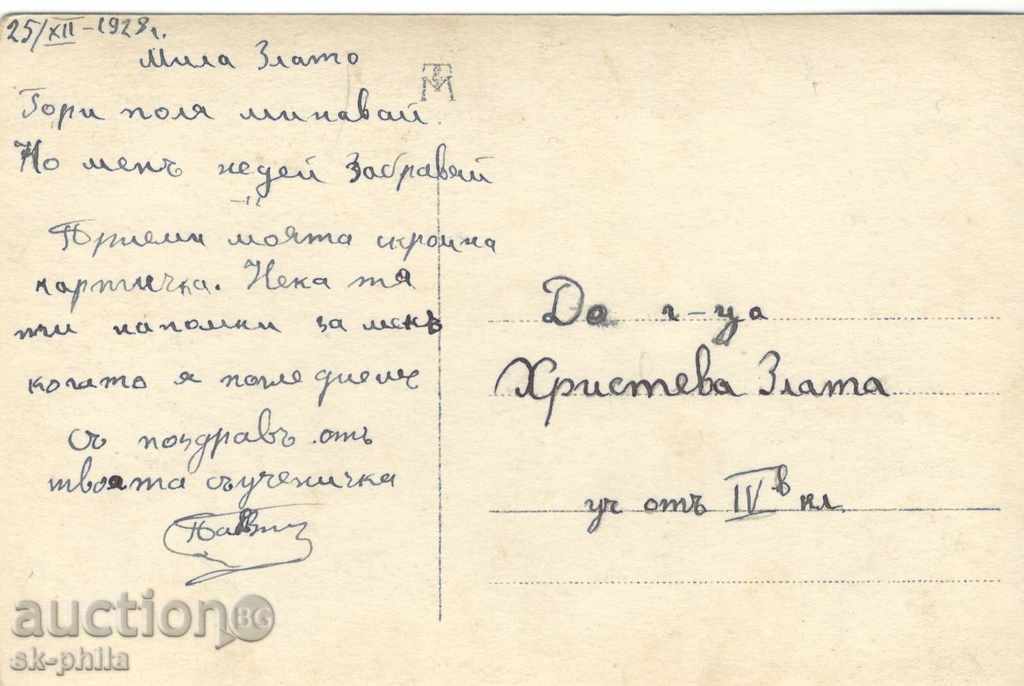 25/XII-1928г.
Мила Злато
Гори поля минавай.
Но менъ недей забравяй
-"
Приеми моята скромна
картичка. Нека тя
ти напомни за менъ
когато я погледнешъ
Съ поздравъ отъ
твоята съученичка
До г-ца
Христева Злата
уч отъ IV в кл.
TM
auction BG
sk-phila